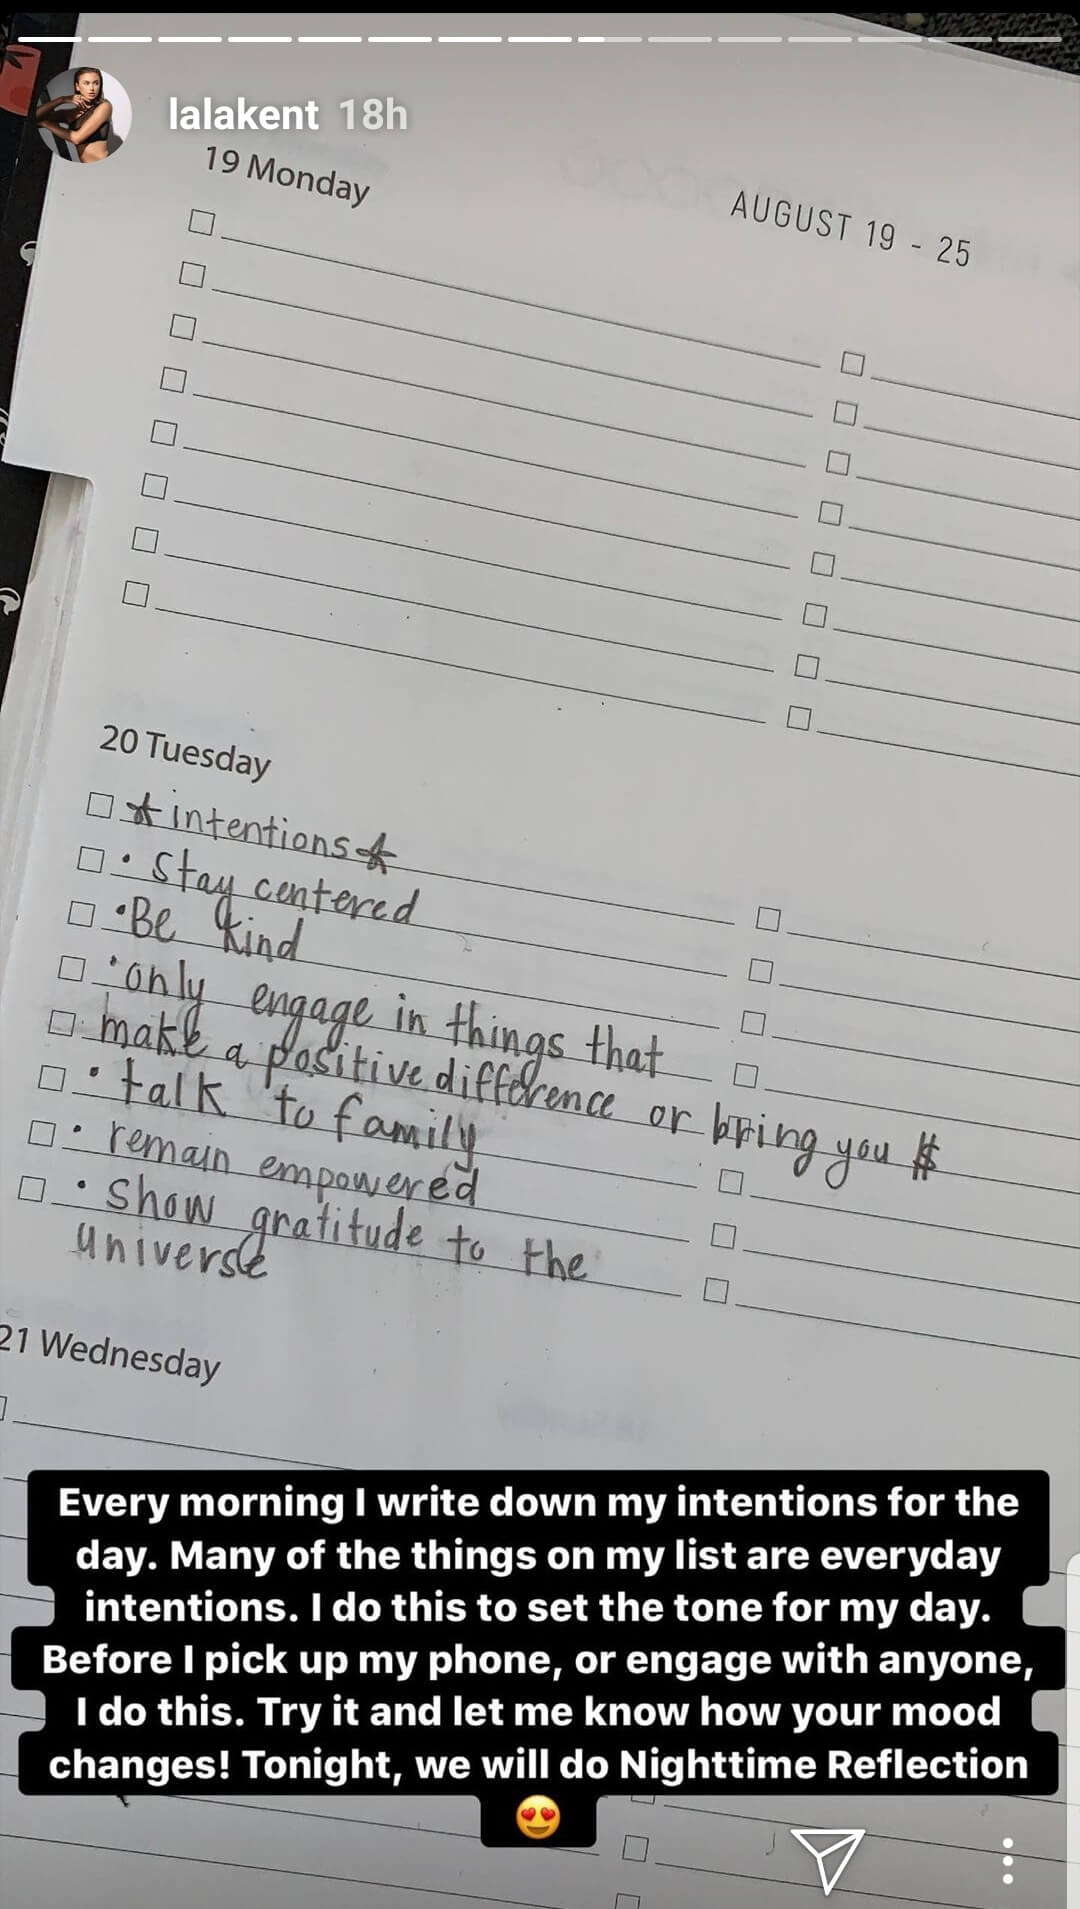 lalakent 18h
19 Monday
AUGUST 19 - 25
20 Tuesday
☆intentions☆
• Stay centered
•Be kind
•only engage in things that
make a positive difference or bring you $
• talk to family
• remain empowered
• Show gratitude to the
universe
21 Wednesday
Every morning I write down my intentions for the
day. Many of the things on my list are everyday
intentions. I do this to set the tone for my day.
Before I pick up my phone, or engage with anyone,
I do this. Try it and let me know how your mood
changes! Tonight, we will do Nighttime Reflection
😍